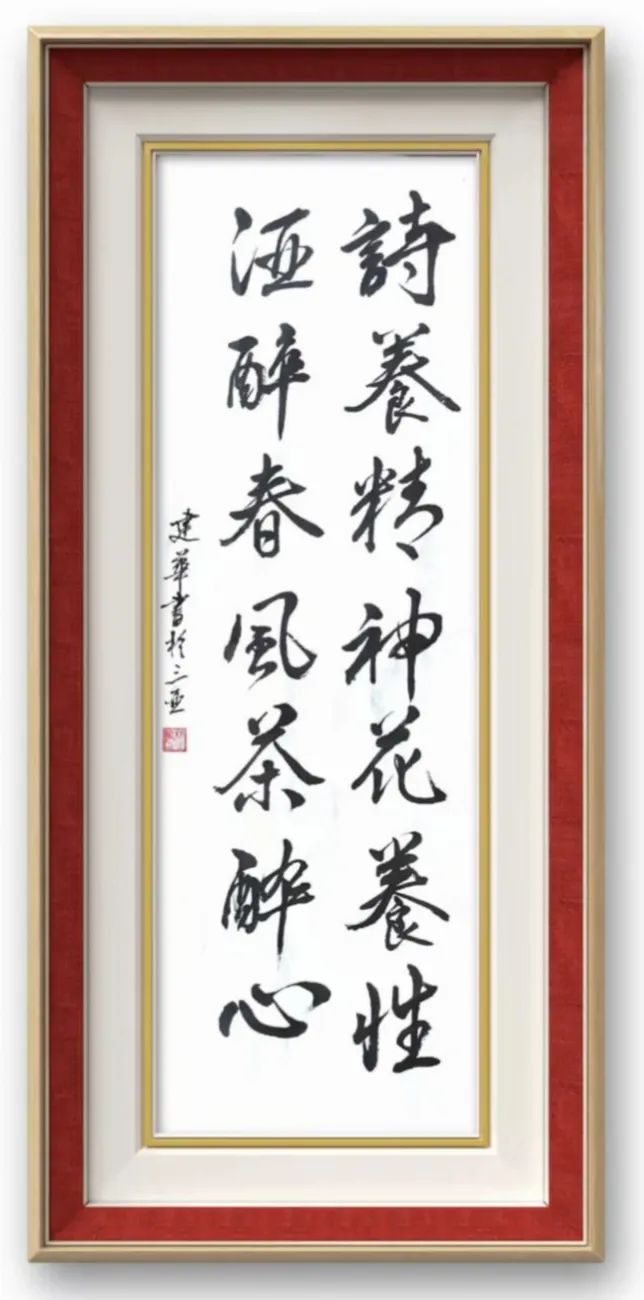 詩養精神花養性
酒醉春風茶醉心
建華書於三亞